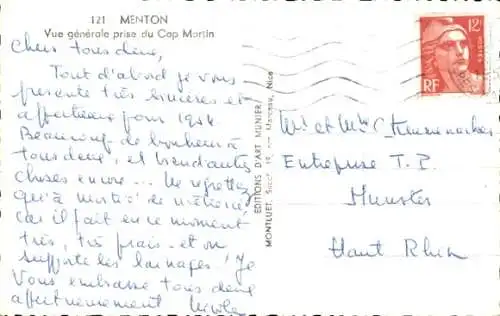 121 MENTON
Vue générale prise du Cap Martin
Chers tous deux,
Tout d'abord je vous
présente très sincères et
affectueux pour 1954
Beaucoup de bonheur à
tous deux, et bien d'autres
choses encore... Ne regrettez
qu'à moitié de
car il fait en ce moment
très, très frais - et on
supporte les lainages! Je
Vous embrasse tous deux
affectueusement Nicole
EDITIONS D'ART MUNIER
MONTLUET, Succ.
Nice
12F
POSTES
RF
Mr et Mme
Entreprise T. P.
Munster
Haut Rhin